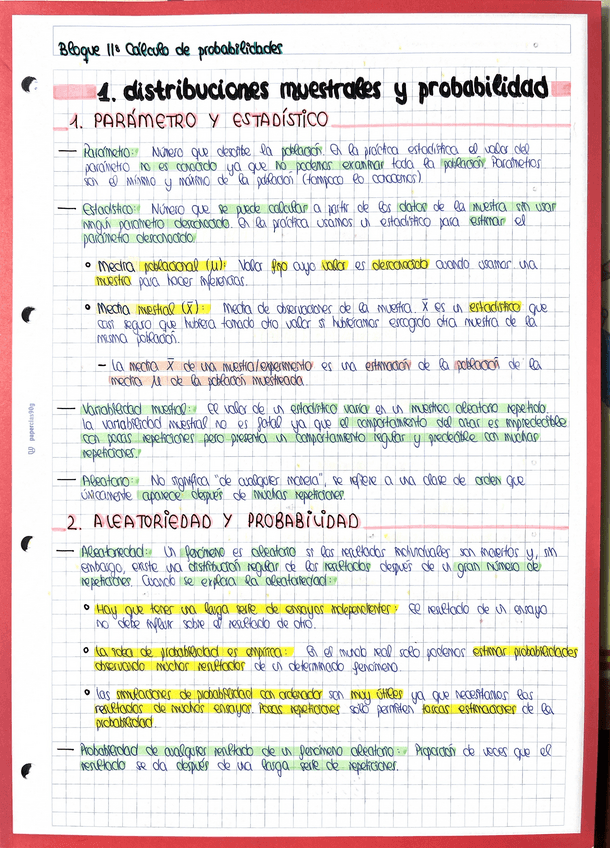 Bloque II: Cálculo de probabilidades
1. distribuciones muestrales y probabilidad
1. PARÁMETRO Y ESTADÍSTICO
— Parámetro: Número que describe la población. En la práctica estadística el valor del
parámetro no es conocido ya que no podemos examinar toda la población. Parámetros
son el mínimo y máximo de la población (tampoco lo conocemos).
— Estadístico: Número que se puede calcular a partir de los datos de la muestra sin usar
ningún parámetro desconocido. En la práctica usamos un estadístico para estimar el
parámetro desconocido.
• Media poblacional (μ): Valor fijo cuyo valor es desconocido cuando usamos una
muestra para hacer inferencias.
• Media mestral (x̄): Media de observaciones de la muestra. x̄ es un estadístico que
casi seguro que hubiera tomado otro valor si hubiéramos escogido otra muestra de la
misma población.
– La media x̄ de una muestra/experimento es una estimación de la población de la
media μ de la población muestreada.
— Variabilidad muestral: El valor de un estadístico varía en un muestreo aleatorio repetido.
la variabilidad muestral no es fatal ya que el comportamiento del azar es impredecible
con pocas repeticiones pero presenta un comportamiento regular y predecible con muchas
repeticiones.
— Aleatorio: No significa "de cualquier manera", se refiere a una clase de orden que
únicamente aparece después de muchas repeticiones.
2. ALEATORIEDAD Y PROBABILIDAD
— Aleatoriedad: Un fenómeno es aleatorio si los resultados individuales son inciertos y, sin
embargo, existe una distribución regular de los resultados después de un gran número de
repeticiones. Cuando se explora la aleatoriedad:
• Hay que tener una larga serie de ensayos independientes: El resultado de un ensayo
no debe influir sobre el resultado de otro.
• La idea de probabilidad es empírica: En el mundo real sólo podemos estimar probabilidades
observando muchos resultados de un determinado fenómeno.
• las simulaciones de probabilidad con ordenador son muy útiles ya que necesitamos los
resultados de muchos ensayos. Pocas repeticiones solo permiten toscas estimaciones de la
probabilidad.
— Probabilidad de cualquier resultado de un fenómeno aleatorio: Proporción de veces que el
resultado se da después de una larga serie de repeticiones.